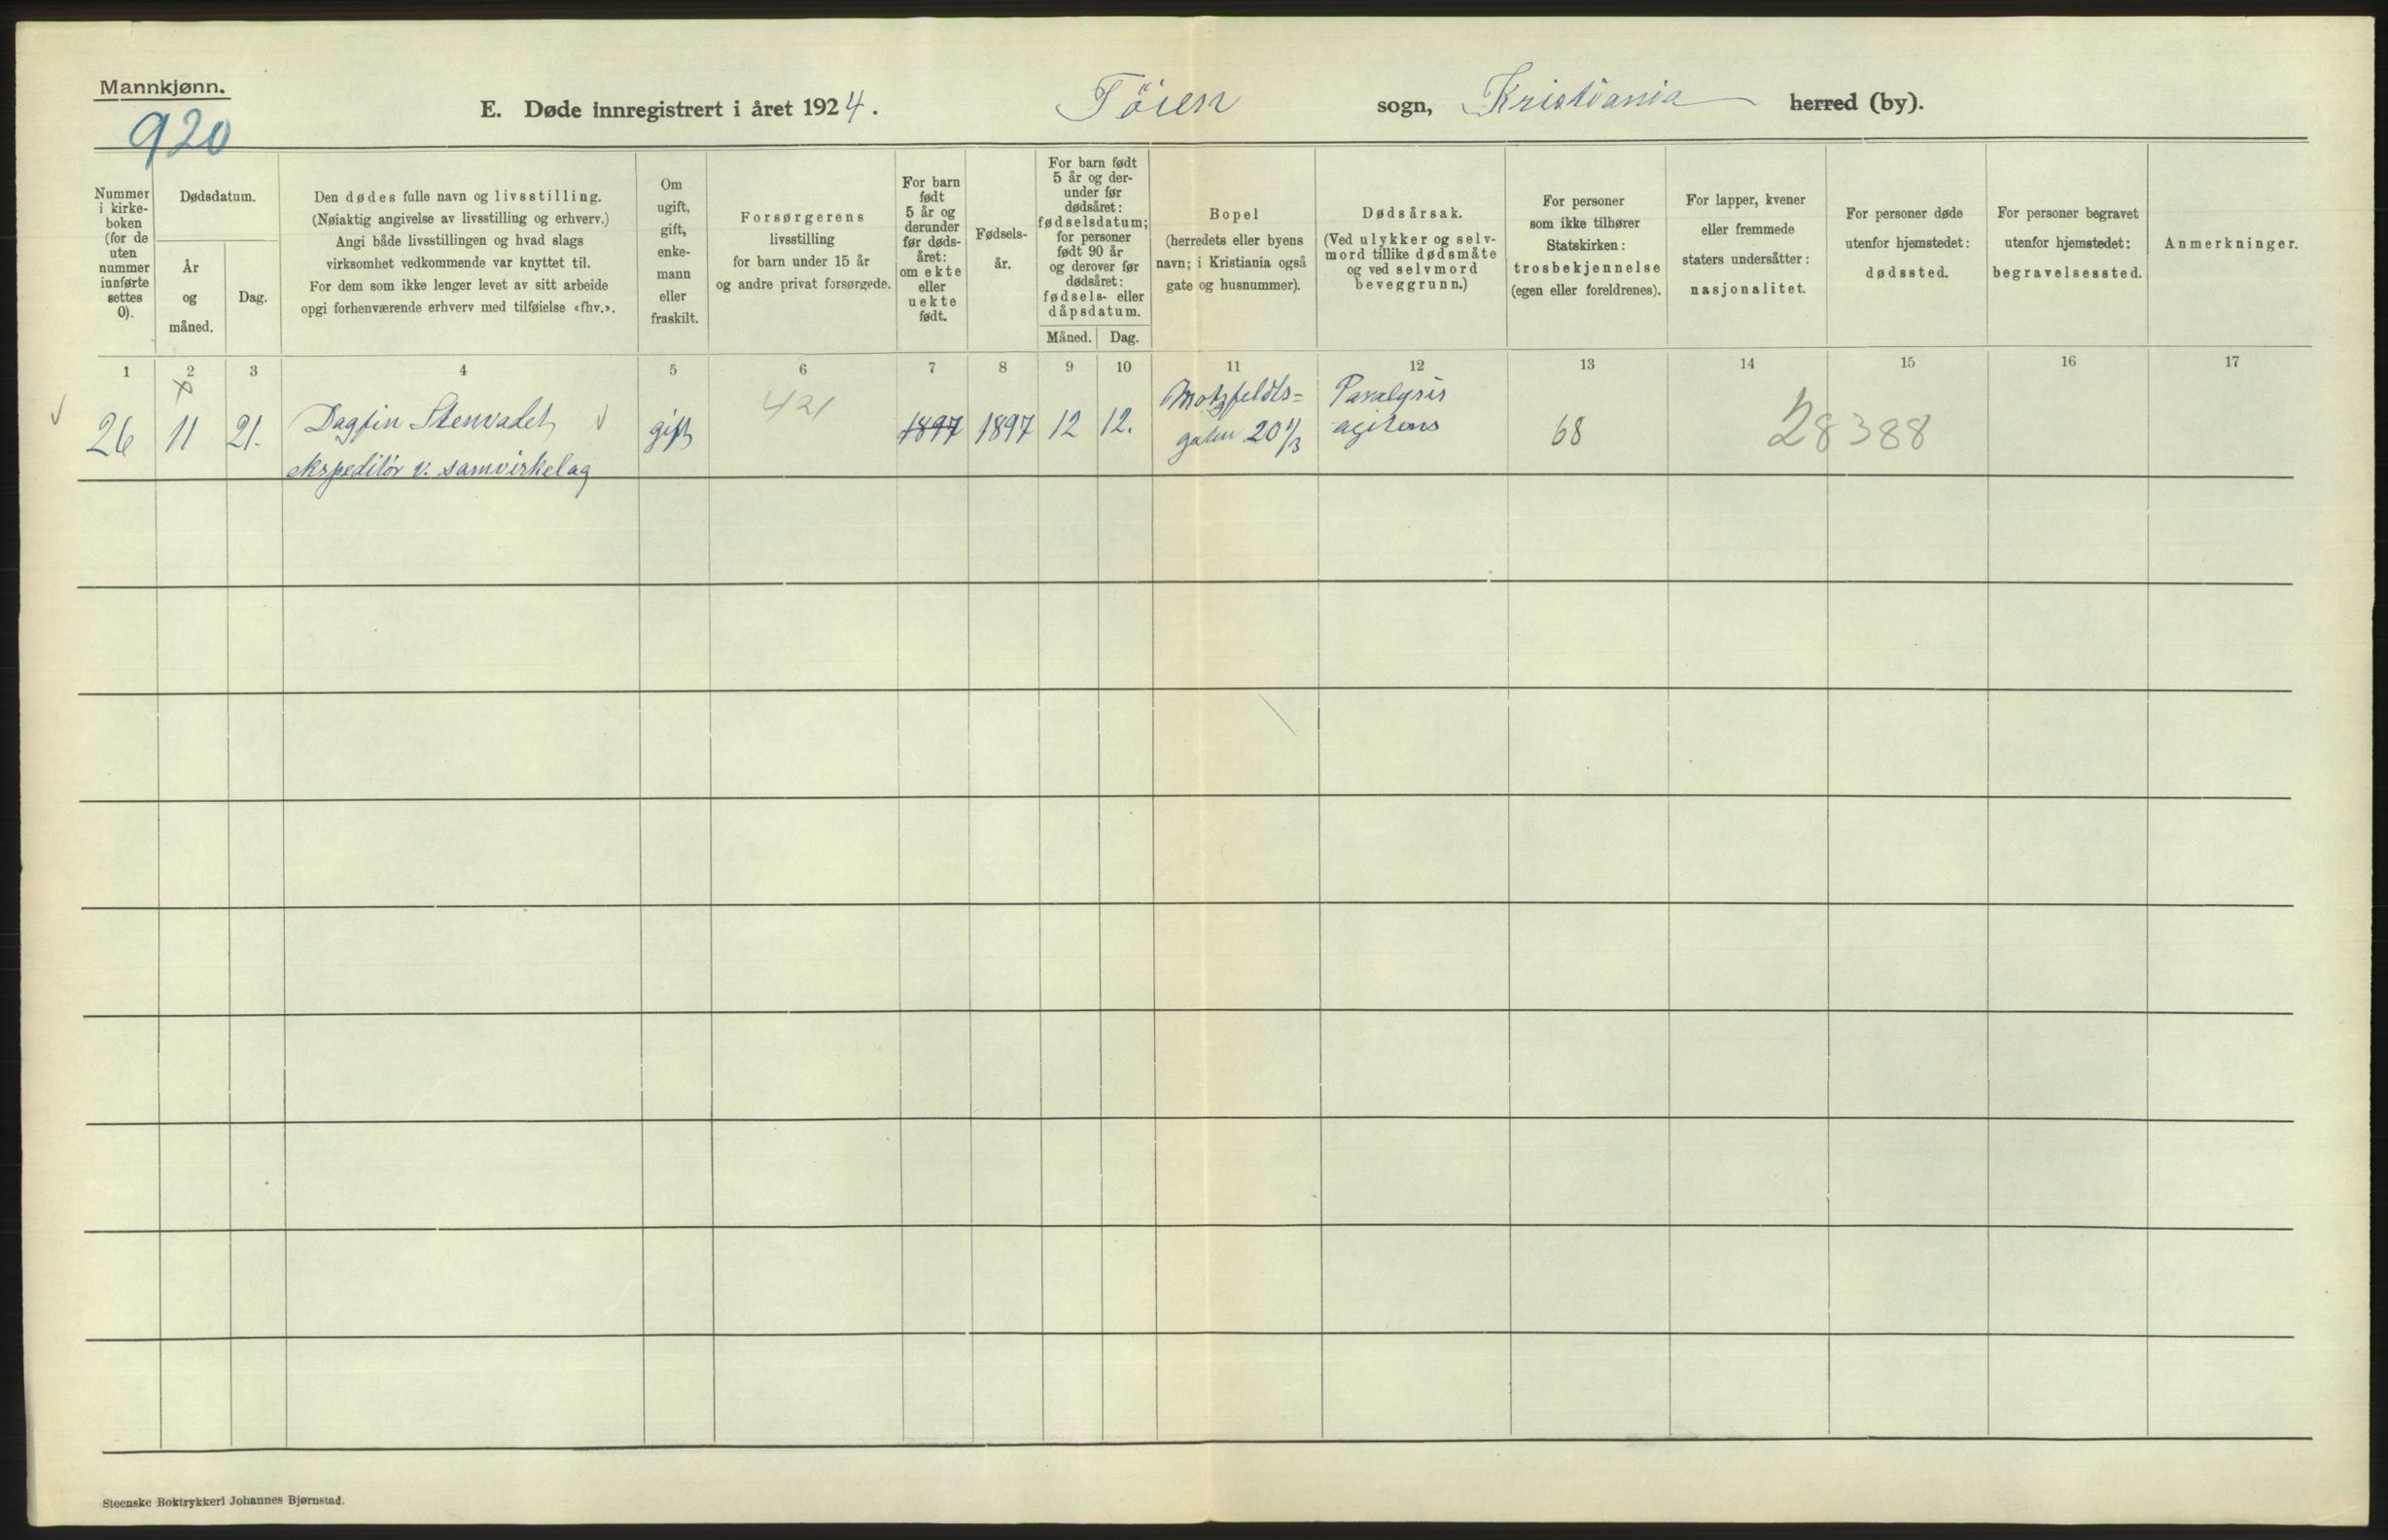 Mannkjønn.
920
E. Døde innregistrert i året 1924.
Töien sogn, Kristiania herred (by).
Nummer i kirke- boken (for de uten nummer innførte settes 0).
Dødsdatum.
År og måned.
Dag.
Den dødes fulle navn og livsstilling.
(Nøiaktig angivelse av livsstilling og erhverv.)
Angi både livsstillingen og hvad slags
virksomhet vedkommende var knyttet til.
For dem som ikke lenger levet av sitt arbeide
opgi forhenværende erhverv med tilføielse «fhv.».
Om
ugift,
gift,
enke-
mann
eller
fraskilt.
Forsørgerens
livsstilling
for barn under 15 år
og andre privat forsørgede.
For barn
født
5 år og
derunder
før døds-
året:
om ekte
eller
uekte
født.
Fødsels-
år.
For barn født
5 år og der-
under før
dødsåret:
fødselsdatum;
for personer
født 90 år
og derover før
dødsåret:
fødsels- eller
dåpsdatum.
Måned. Dag.
Bopel
(herredets eller byens
navn; i Kristiania også
gate og husnummer).
Dødsårsak.
(Ved ulykker og selv-
mord tillike dødsmåte
og ved selvmord
beveggrunn.)
For personer
som ikke tilhører
Statskirken:
trosbekjennelse
(egen eller foreldrenes).
For lapper, kvener
eller fremmede
staters undersåtter:
nasjonalitet.
For personer døde
utenfor hjemstedet:
dødssted.
For personer begravet
utenfor hjemstedet:
begravelsessted.
Anmerkninger.
1 2 3 4 5 6 7 8 9 10 11 12 13 14 15 16 17
26 11 21. Dagfin Stenvadet gift 421 1897 1897 12 12. Motzfeldts= Paralysis 68 28388
ekspeditör v. samvirkelag gaten 20 1/3 agitans
Steenske Boktrykkeri Johannes Bjørnstad.